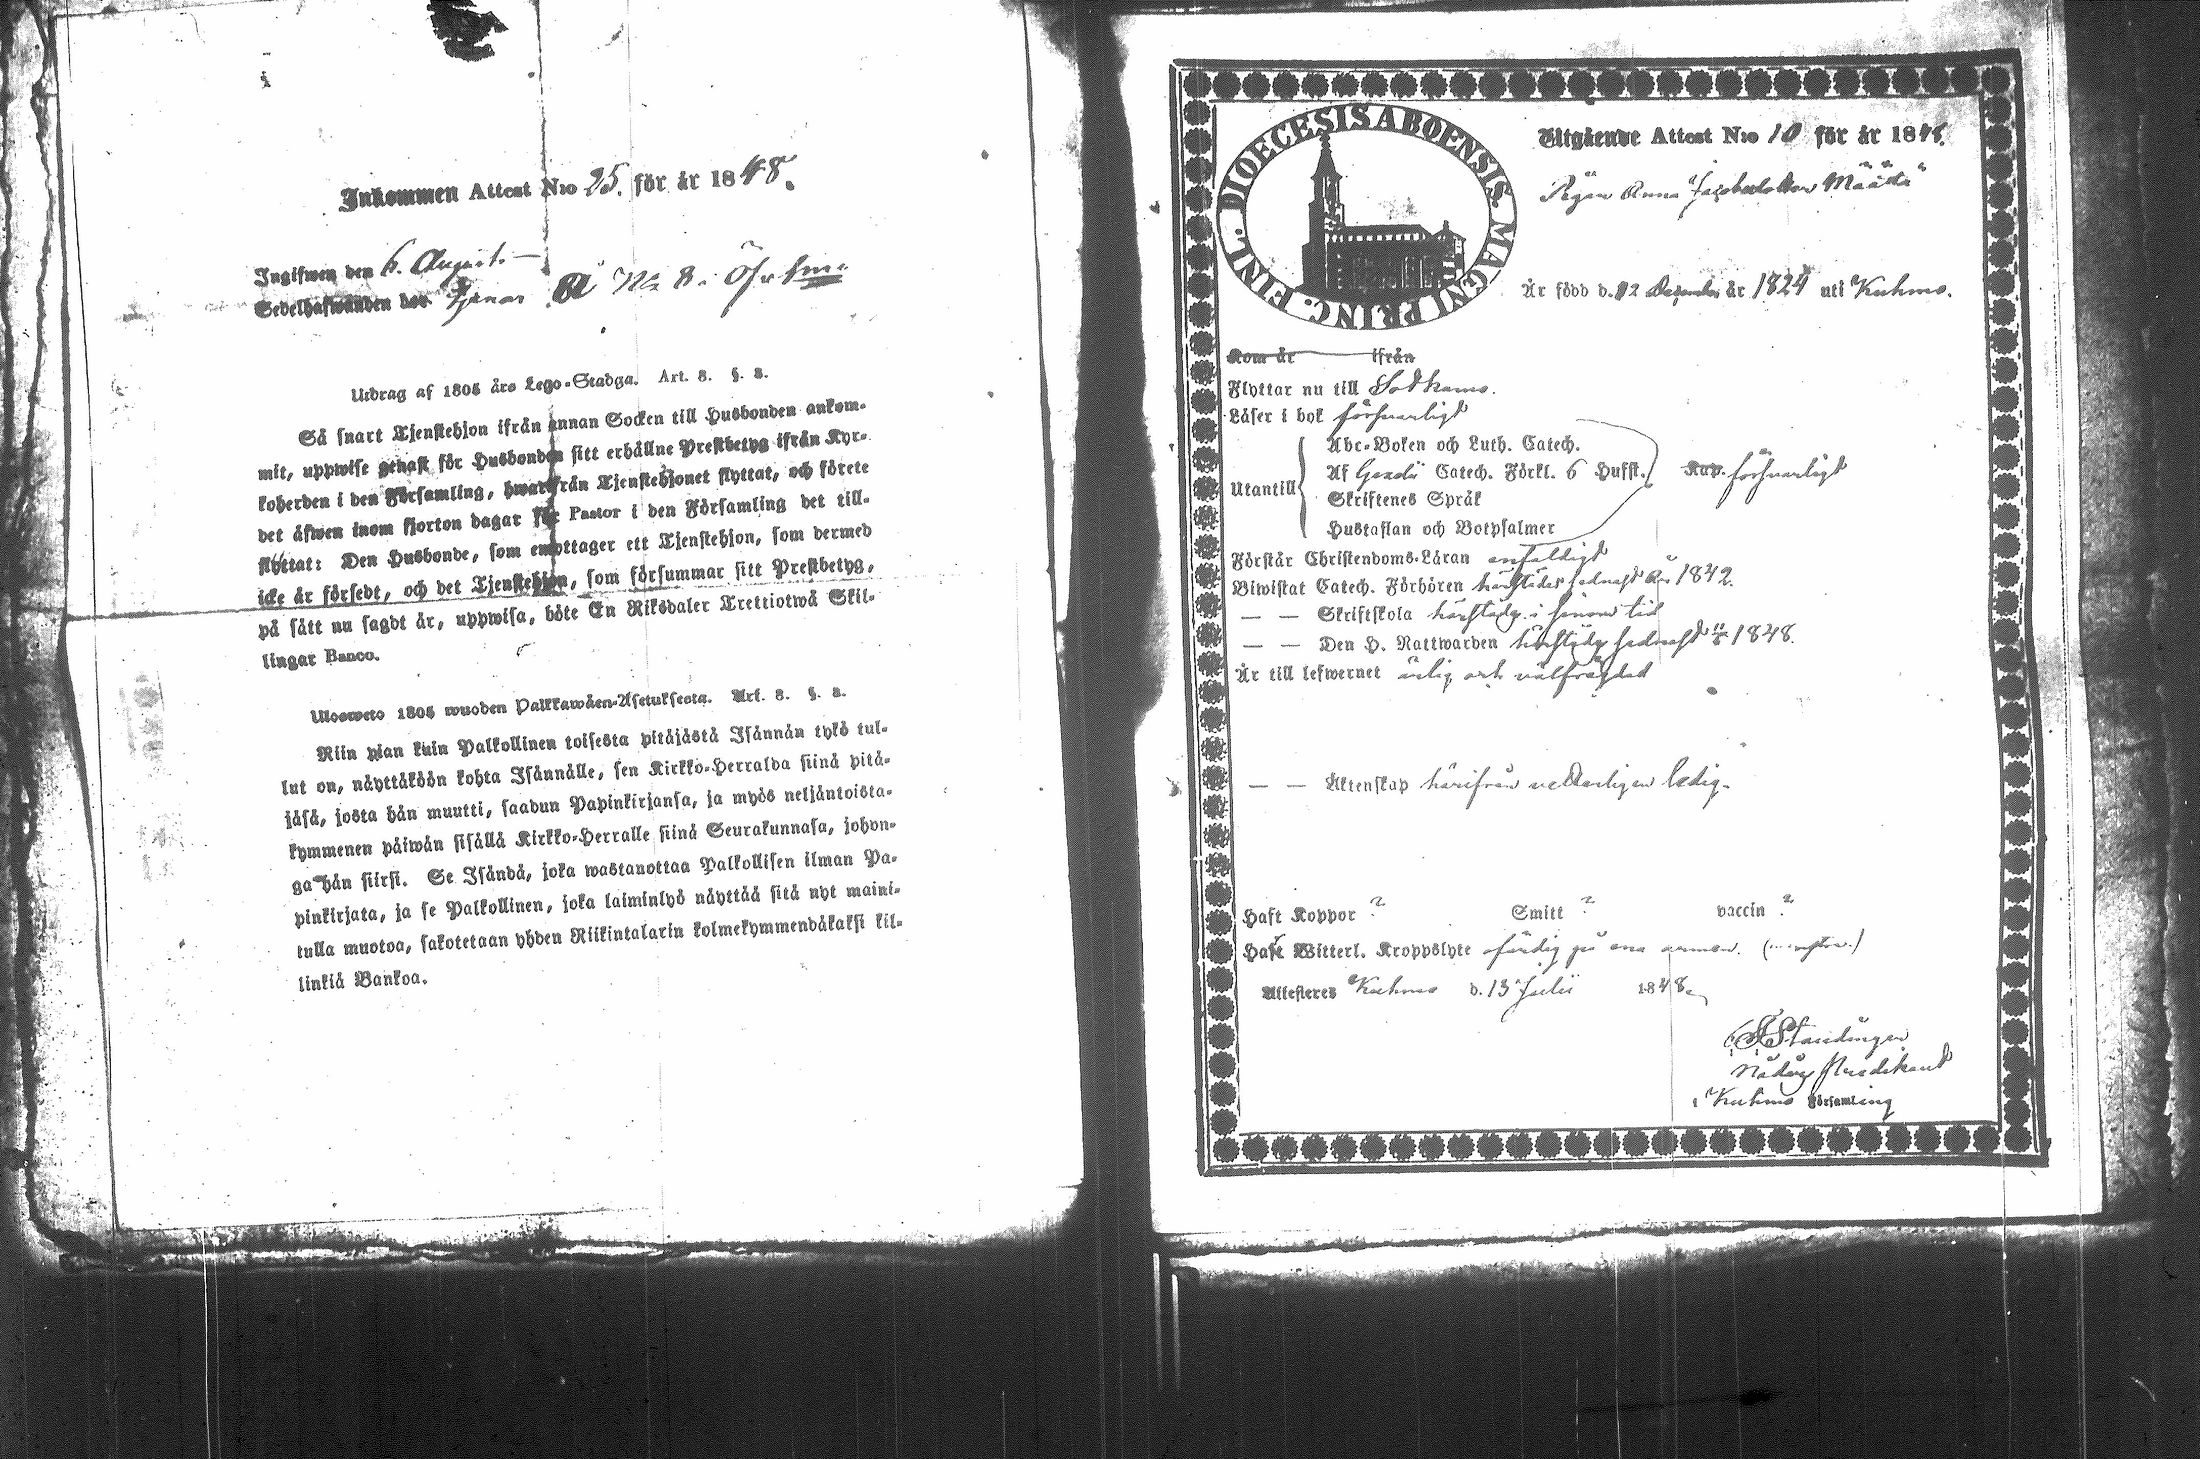 Inkommen Attest N:o 25. för år 1848.
Ingifwen den 6. August.
Sedelhafwanden har tjenar å N: 8.
Utdrag af 1805 års Lego-Stadga. Art. 8. §. 2.
Så snart Tjenstehjon ifrån annan Socken till Husbonden ankom-
mit, uppwise genast för Husbonden sitt erhållne Prestbetyg ifrån Kyr-
koherden i den Församling, hwarifrån Tjenstehjonet flyttat, och förete
det äfwen inom fjorton dagar för Pastor i den Församling det till-
flyttat: Den Husbonde, som emottager ett Tjenstehjon, som dermed
icke är försedt, och det Tjenstehjon, som försummar sitt Prestbetyg,
på sätt nu sagdt är, uppwisa, böte En Riksdaler Trettiotwå Skil-
lingar Banco.
Ulosweto 1805 wuoden Palkkawäen-Asetuksesta. Art. 8. §. 2.
Niin pian kuin Palkollinen toisesta pitäjästä Isännän tykö tul-
lut on, näyttäköön kohta Isännälle, sen Kirkko-Herralda siinä pitä-
jäsä, josta hän muutti, saadun Papinkirjansa, ja myös neljäntoista-
kymmenen päiwän sisällä Kirkko-Herralle siinä Seurakunnasa, johon-
ga hän siirsi. Se Isändä, joka wastanottaa Palkollisen ilman Pa-
pinkirjata, ja se Palkollinen, joka laiminlyö näyttää sitä nyt maini-
tulla muotoa, sakotetaan yhden Riikintalarin kolmekymmendäkaksi kil-
linkiä Bankoa.
FINL. DIOECESIS ABOENSIS. MAGNI PRINC:
Utgående Attest N:o 10 för år 1848.
Pigan Anna Jacobsdotter Määttä
Är född d. 12 December år 1824 uti Kuhmo.
Kom år ifrån
Flyttar nu till Sotkamo.
Läser i bok försvarligt
Abc-Boken och Luth. Catech.
Af Catech. Förkl. 6 Hufst. försvarligt
Utantill
Skriftenes Språk
Hustaflan och Botpsalmer
Förstår Christendoms-Läran enfaldigt
Biwistat Catech. Förhören härstädes sednast år 1842.
— — Skriftskola härstädes i sinom tid
— — Den H. Nattwarden härstädes sednast 1848.
Är till lefwernet ärlig och välfrägdad
— — Äktenskap härifrån vetterligen ledig.
Haft Koppor ? Smitt ? vaccin ?
Haft Witterl. Kroppslyte ofärdig på ena armen.
Attesteras Kuhmo d. 13 Julii 1848
Staudinger
Nådårs Predikant
i Kuhmo Församling